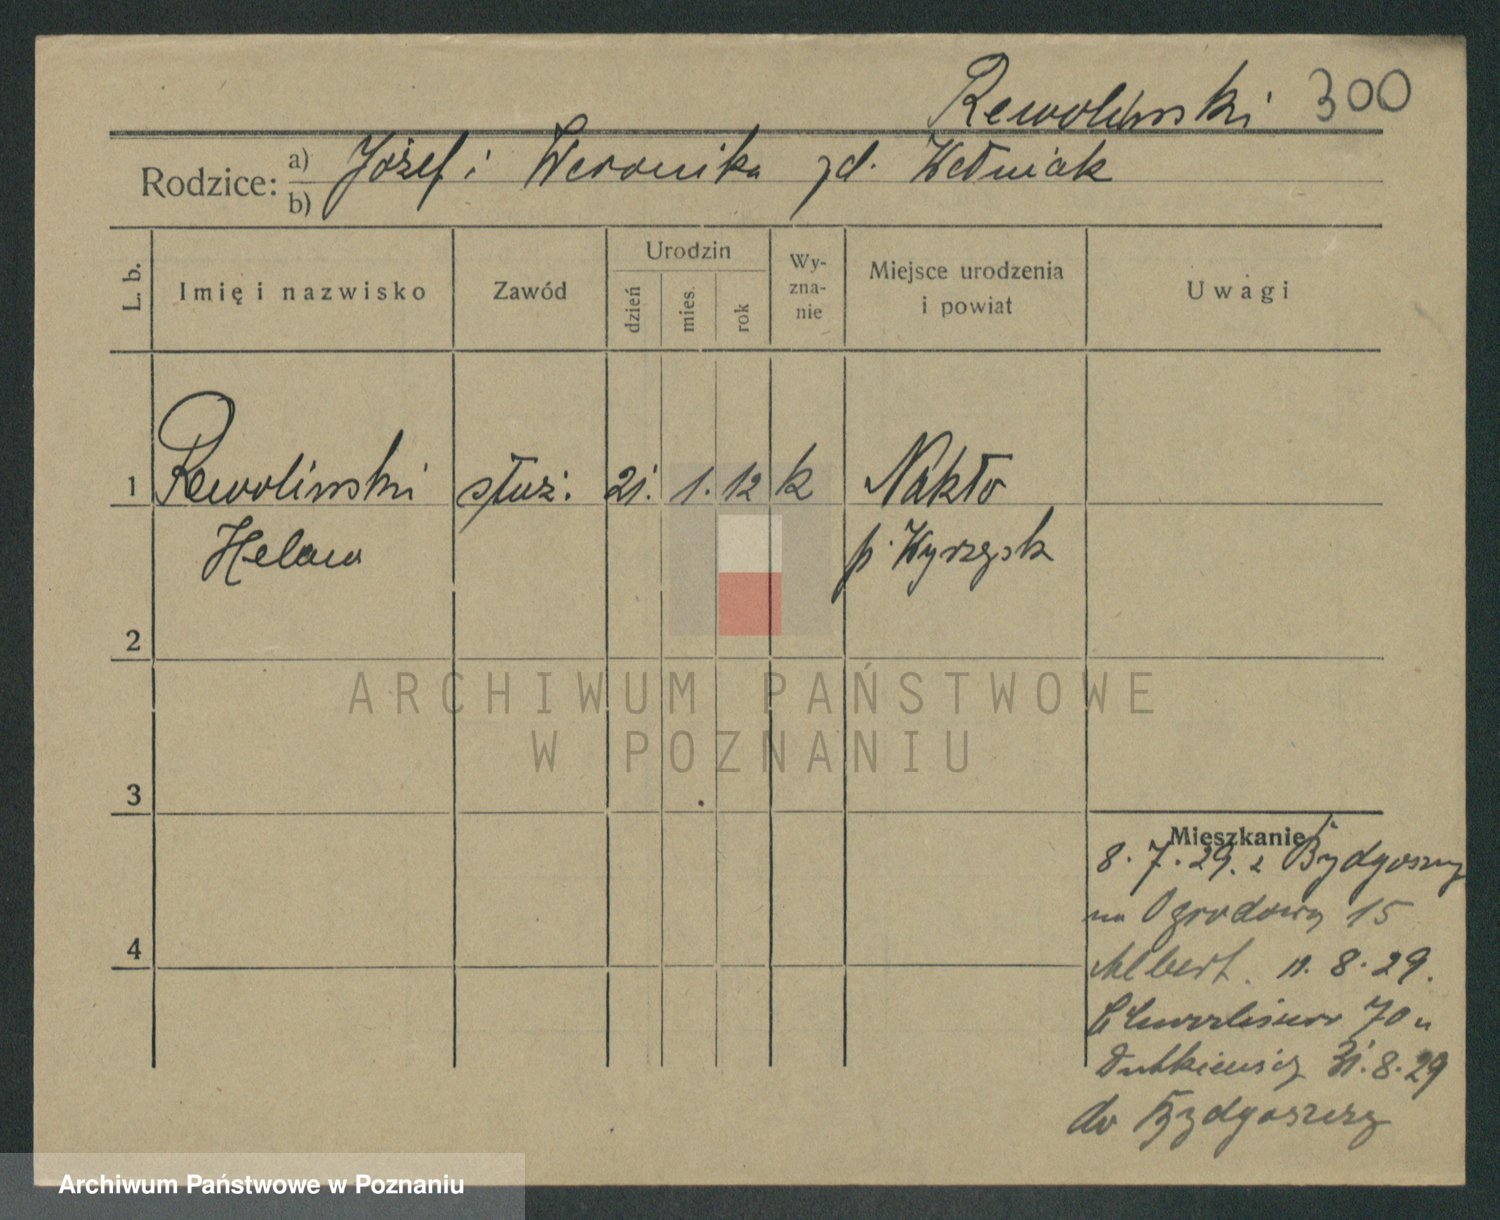 Rewoliński 300
Rodzice: a) Józef i Weronika zd. Wełniak
b)
L. b. Imię i nazwisko Zawód Urodzin Wy-zna-nie Miejsce urodzenia i powiat Uwagi
dzień mies. rok
1 Rewolinski służ. 21. 1. 12 k Nakło
Helena p. Wyrzysk
2
ARCHIWUM PAŃSTWOWE
W POZNANIU
3
Mieszkanie
8. 7. 29. z Bydgoszczy
na Ogrodową 15
Albert. 8. 29.
70 u
Dutkiewicz 31. 8. 29
4
do Bydgoszczy
Archiwum Państwowe w Poznaniu